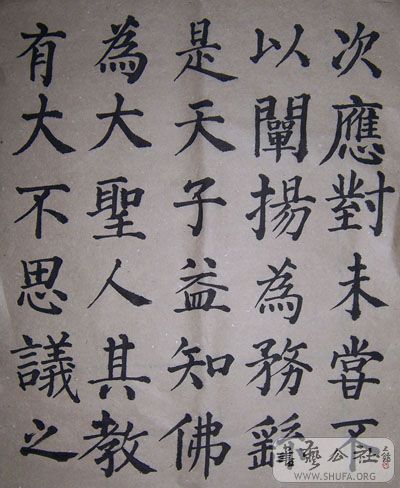 次應對未嘗不
以闡揚為務繇
是天子益知佛
為大聖人其教
有大不思議之
書藝公社
WWW.SHUFA.ORG